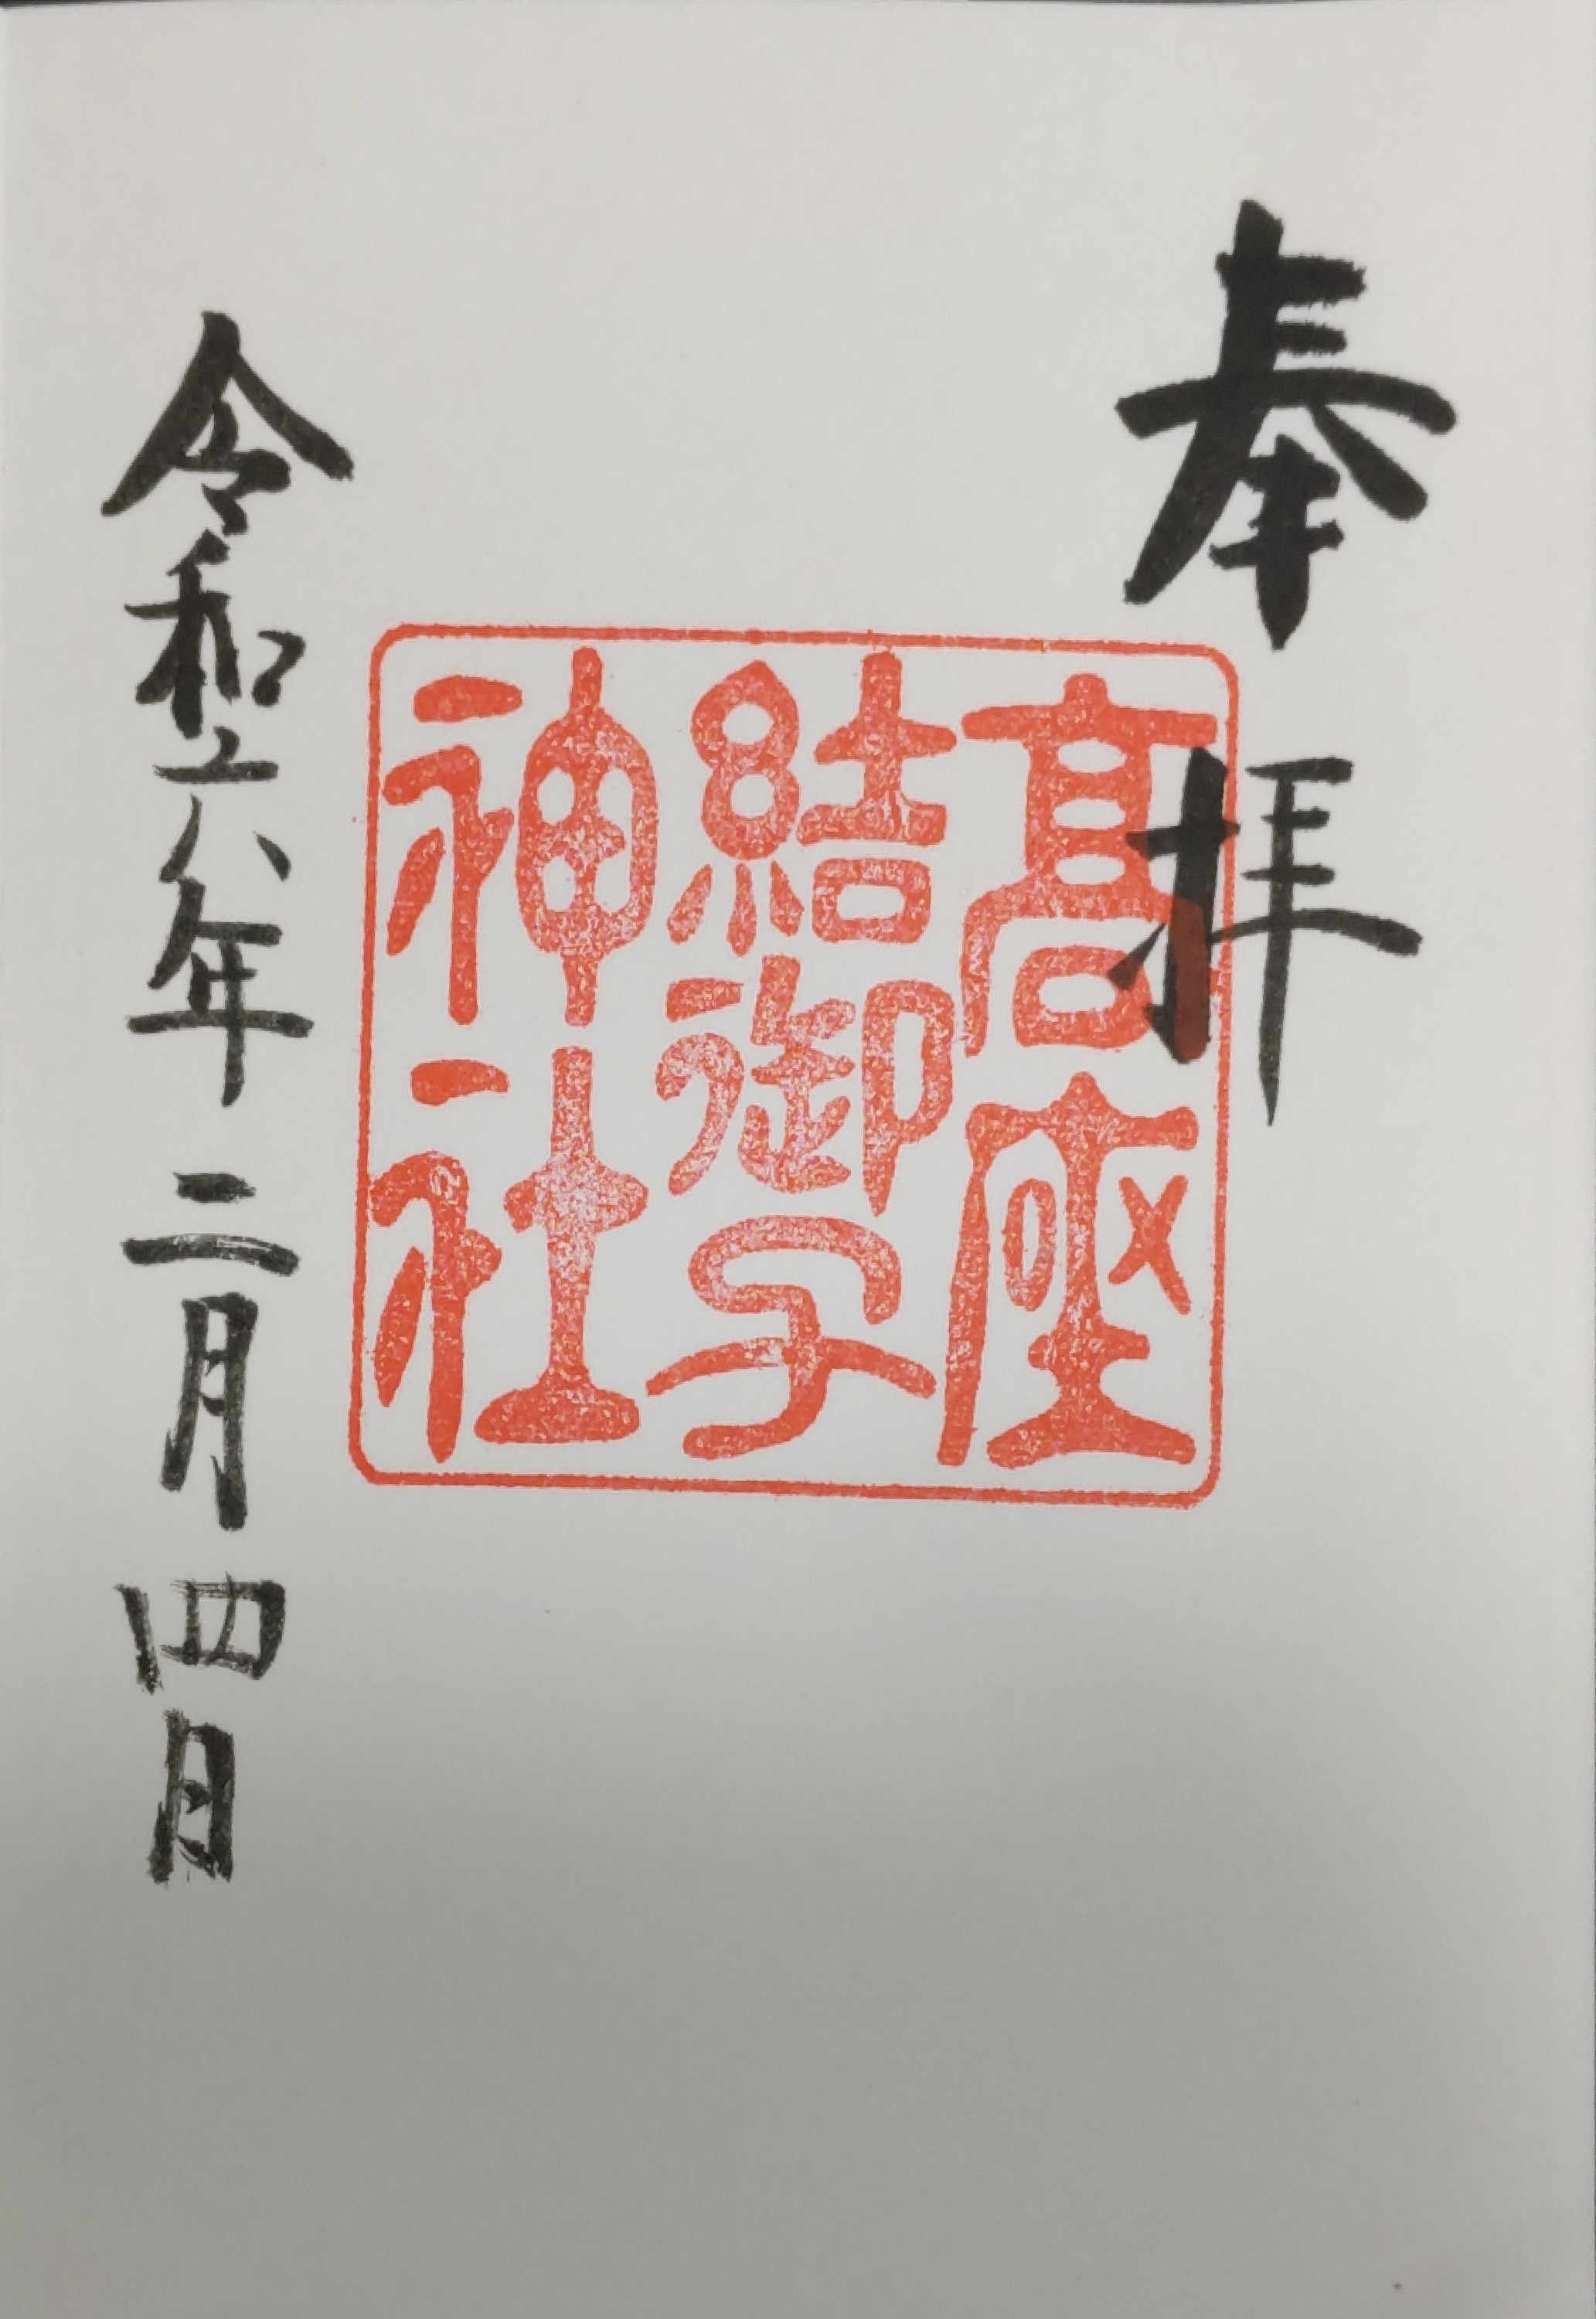 奉拝
髙座
結御子
神社
令和六年二月四日